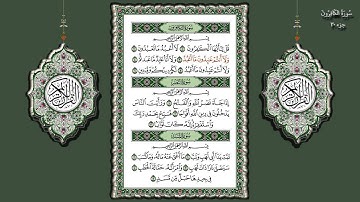 سُورَةُ الكَافِرُونَ
جزء ٣٠
سُورَةُ الكَافِرُونَ
بِسْمِ اللَّهِ الرَّحْمَٰنِ الرَّحِيمِ
قُلْ يَٰٓأَيُّهَا ٱلْكَٰفِرُونَ ١ لَآ أَعْبُدُ مَا تَعْبُدُونَ ٢
وَلَآ أَنتُمْ عَٰبِدُونَ مَآ أَعْبُدُ ٣ وَلَآ أَنَا۠ عَابِدٌ مَّا عَبَدتُّمْ ٤
وَلَآ أَنتُمْ عَٰبِدُونَ مَآ أَعْبُدُ ٥ لَكُمْ دِينُكُمْ وَلِيَ دِينِ ٦
سُورَةُ النَّصْرِ
بِسْمِ اللَّهِ الرَّحْمَٰنِ الرَّحِيمِ
إِذَا جَآءَ نَصْرُ ٱللَّهِ وَٱلْفَتْحُ ١ وَرَأَيْتَ ٱلنَّاسَ
يَدْخُلُونَ فِى دِينِ ٱللَّهِ أَفْوَاجًا ٢ فَسَبِّحْ بِحَمْدِ رَبِّكَ
وَٱسْتَغْفِرْهُ إِنَّهُۥ كَانَ تَوَّابًۢا ٣
سُورَةُ المَسَدِ
بِسْمِ اللَّهِ الرَّحْمَٰنِ الرَّحِيمِ
تَبَّتْ يَدَآ أَبِى لَهَبٍ وَتَبَّ ١ مَآ أَغْنَىٰ عَنْهُ مَالُهُۥ وَمَا كَسَبَ ٢
سَيَصْلَىٰ نَارًا ذَاتَ لَهَبٍ ٣ وَٱمْرَأَتُهُۥ حَمَّالَةَ ٱلْحَطَبِ ٤
فِى جِيدِهَا حَبْلٌ مِّن مَّسَدٍۭ ٥